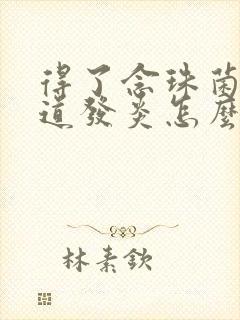 得了念珠菌
道發炎怎麼
林素欽